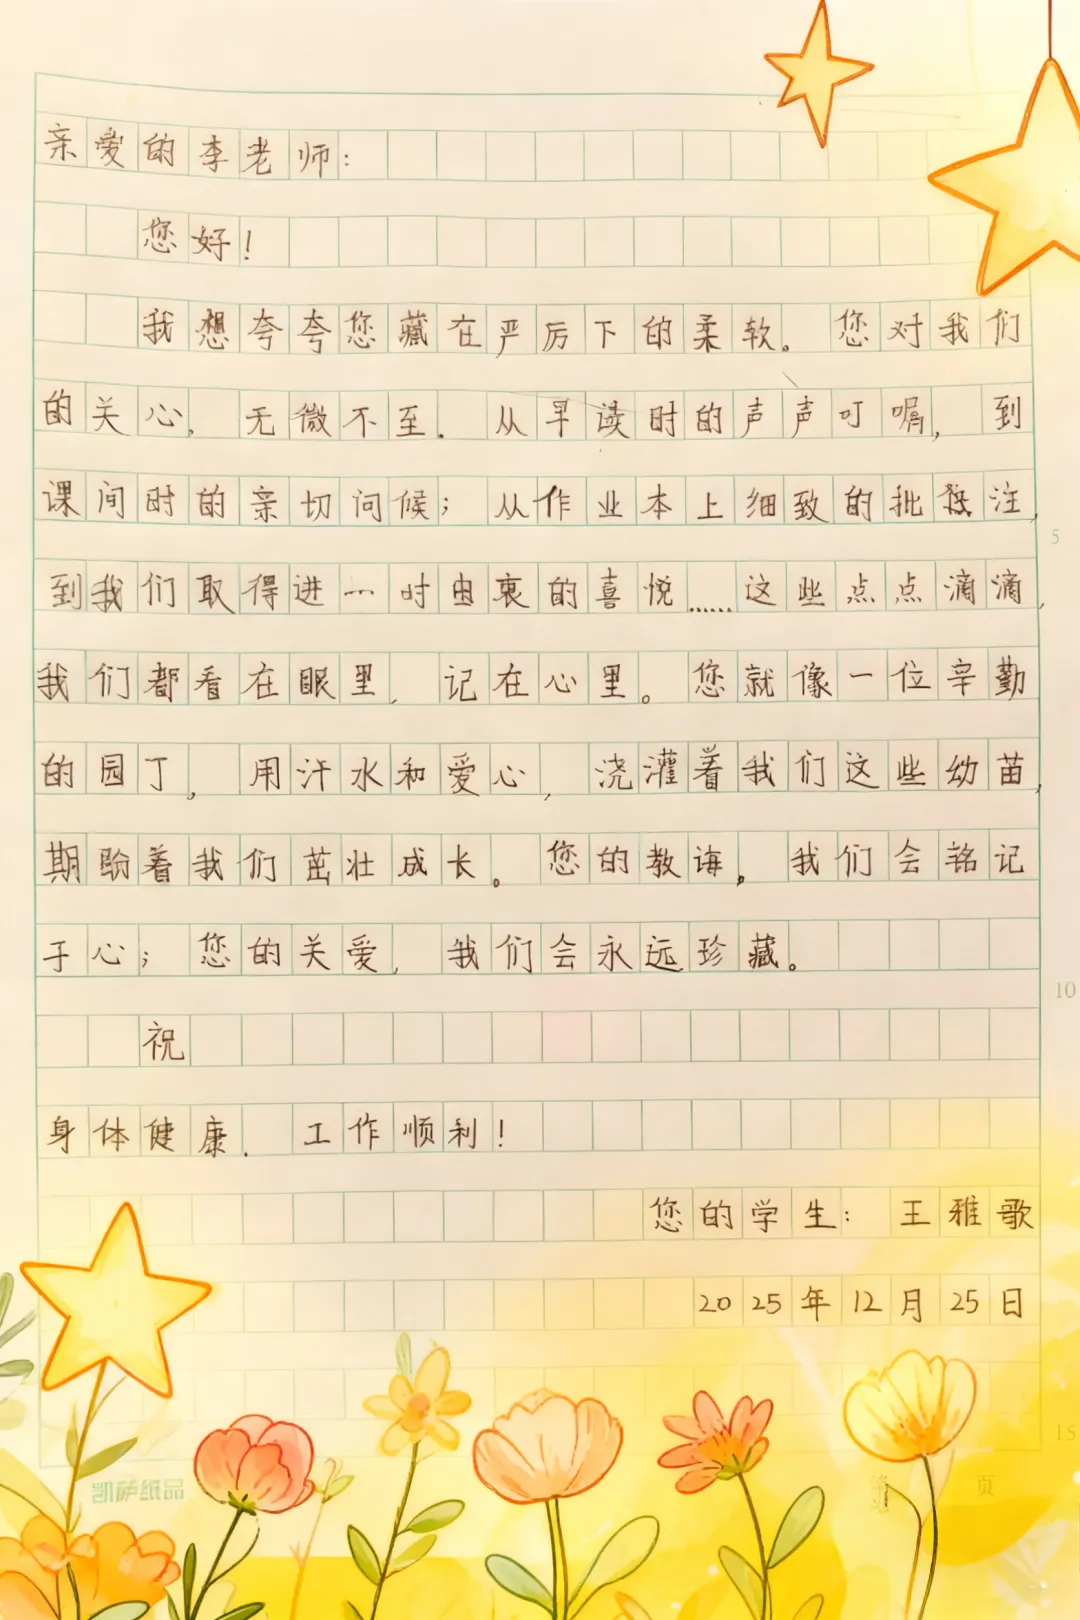 亲爱的李老师：
您好！
我想夸夸您藏在严厉下的柔软。您对我们
的关心，无微不至。从早读时的声声叮嘱，到
课间时的亲切问候；从作业本上细致的批注，
到我们取得进一时由衷的喜悦……这些点点滴滴，
我们都看在眼里，记在心里。您就像一位辛勤
的园丁，用汗水和爱心，浇灌着我们这些幼苗，
期盼着我们茁壮成长。您的教诲，我们会铭记
于心；您的关爱，我们会永远珍藏。
祝
身体健康，工作顺利！
您的学生：王雅歌
2025年12月25日
5
10
15
凯萨纸品
第 页